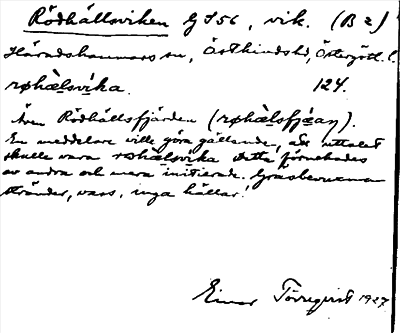 Rödhällsviken G J 56, vik. (B 2)
Häradshammars sn, Östkinds hd, Östergötl. l.
røhæ̀lsvika. 124.
Även Rödhällsfjärden (røhæ̀lsfjæaṇ).
En meddelare ville göra gällande, att uttalet
skulle vara røhælsvika Detta förnekades
av andra och mera initierade. Gräsbevuxna
stränder, vass, inga hällar!
Einar Törnqvist 1927